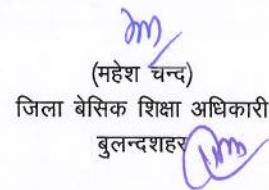 (महेश चन्द)
जिला बेसिक शिक्षा अधिकारी
बुलन्दशहर